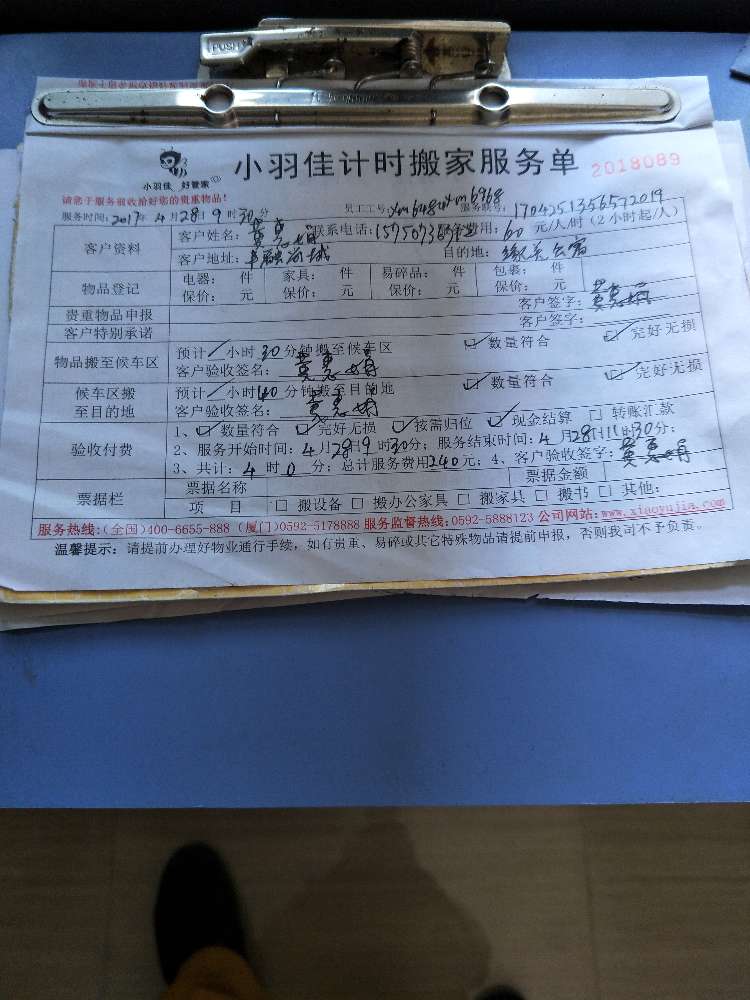 PUSH
小羽佳 好管家
小羽佳计时搬家服务单 2018089
请您于服务前收拾好您的贵重物品!
服务时间: 2017年 4月 28日 9时 30分 员工工号: 服务联号: 1704251356572019
客户资料 客户姓名: 联系电话: 费用: 60 元/人/时 (2小时起/人)
客户地址: 目的地:
物品登记 电器: 件 家具: 件 易碎品: 件 包裹: 件
保价: 元 保价: 元 保价: 元 保价: 元 客户签字:
贵重物品申报
客户特别承诺 客户签字:
物品搬至候车区 预计/小时30分钟搬至候车区 ☑数量符合 ☑完好无损
客户验收签名:
候车区搬至目的地 预计/小时40分钟搬至目的地 ☑数量符合 ☑完好无损
客户验收签名:
验收付费 1、☑数量符合 ☑完好无损 ☑按需归位 ☑现金结算 □转账汇款
2、服务开始时间: 4月28日9时30分; 服务结束时间: 4月28日11时30分;
3、共计: 4时0分; 总计服务费用240元; 4、客户验收签字:
票据栏 票据名称 票据金额
项 目 □搬设备 □搬办公家具 □搬家具 □搬书 □其他:
服务热线: (全国)400-6655-888 (厦门)0592-5178888 服务监督热线: 0592-5888123 公司网站: www.xiaoyujia.com
温馨提示: 请提前办理好物业通行手续, 如有贵重、易碎或其它特殊物品请提前申报, 否则我司不予负责。